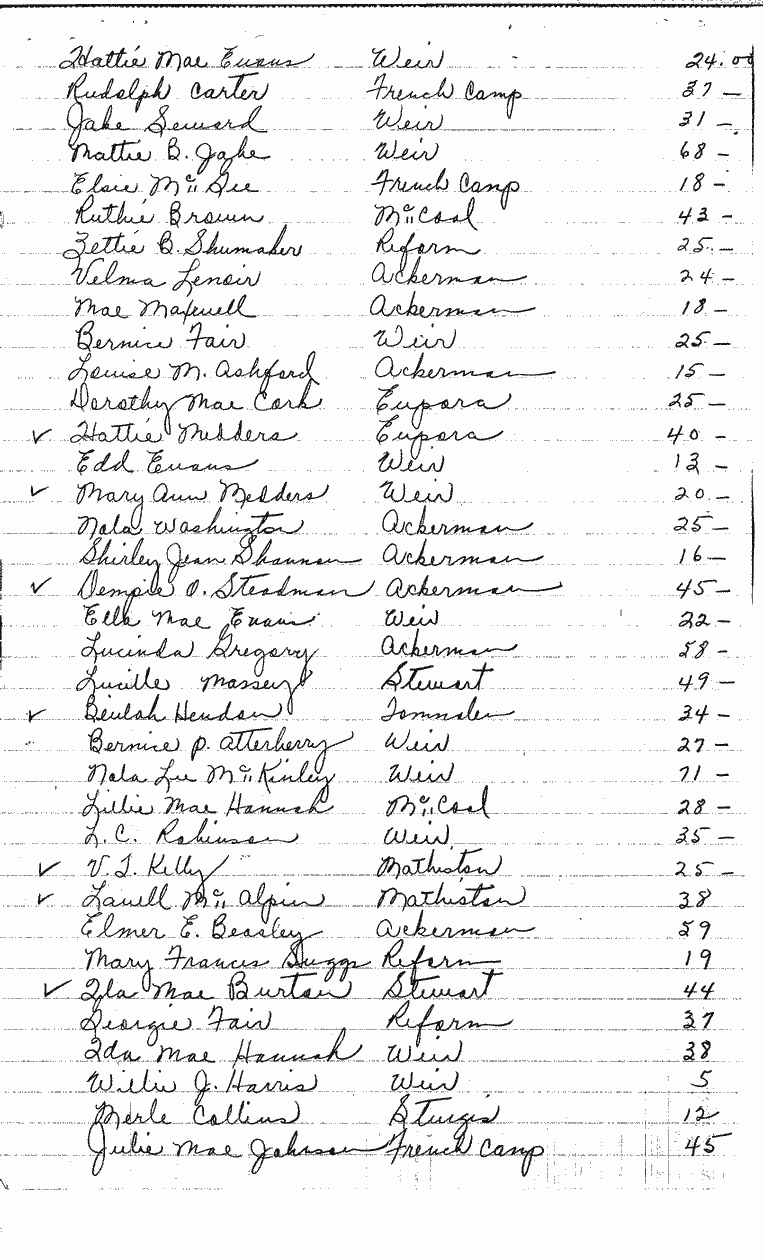 Hattie Mae Evans Weir 24.00
Rudolph Carter French Camp 37 –
Jake Seward Weir 31 –
Mattie B. Jake Weir 68 –
Elsie McGee French Camp 18 –
Ruthie Brown McCool 43 –
Zettie B. Shumaker Reform 25 –
Velma Lenoir Ackerman 24 –
Mae Maxwell Ackerman 18 –
Bernice Fair Weir 25 –
Louise M. Ashford Ackerman 15 –
Dorothy Mae Cork Eupora 25 –
✓ Hattie Medders Eupora 40 –
Edd Evans Weir 13 –
✓ Mary Ann Medders Weir 20 –
Nola Washington Ackerman 25 –
Shirley Jean Shannon Ackerman 16 –
✓ Dempie O. Steadman Ackerman 45 –
Ella Mae Evans Weir 22 –
Lucinda Gregory Ackerman 58 –
Lucille Massey Stewart 49 –
✓ Beulah Hendon Tomnolen 34 –
Bernice P. Atterberry Weir 27 –
Nola Lee McKinley Weir 71 –
Lillie Mae Hannah McCool 28 –
L.C. Robinson Weir 35 –
✓ V.T. Kelly Mathiston 25 –
✓ Lavell McAlpin Mathiston 38
Elmer E. Beasley Ackerman 59
Mary Frances Suggs Reform 19
✓ Ila Mae Burton Stewart 44
Georgie Fair Reform 37
Ida Mae Hannah Weir 38
Willie J. Harris Weir 5
Merle Collins Sturgis 12
Julie Mae Johnson French Camp 45